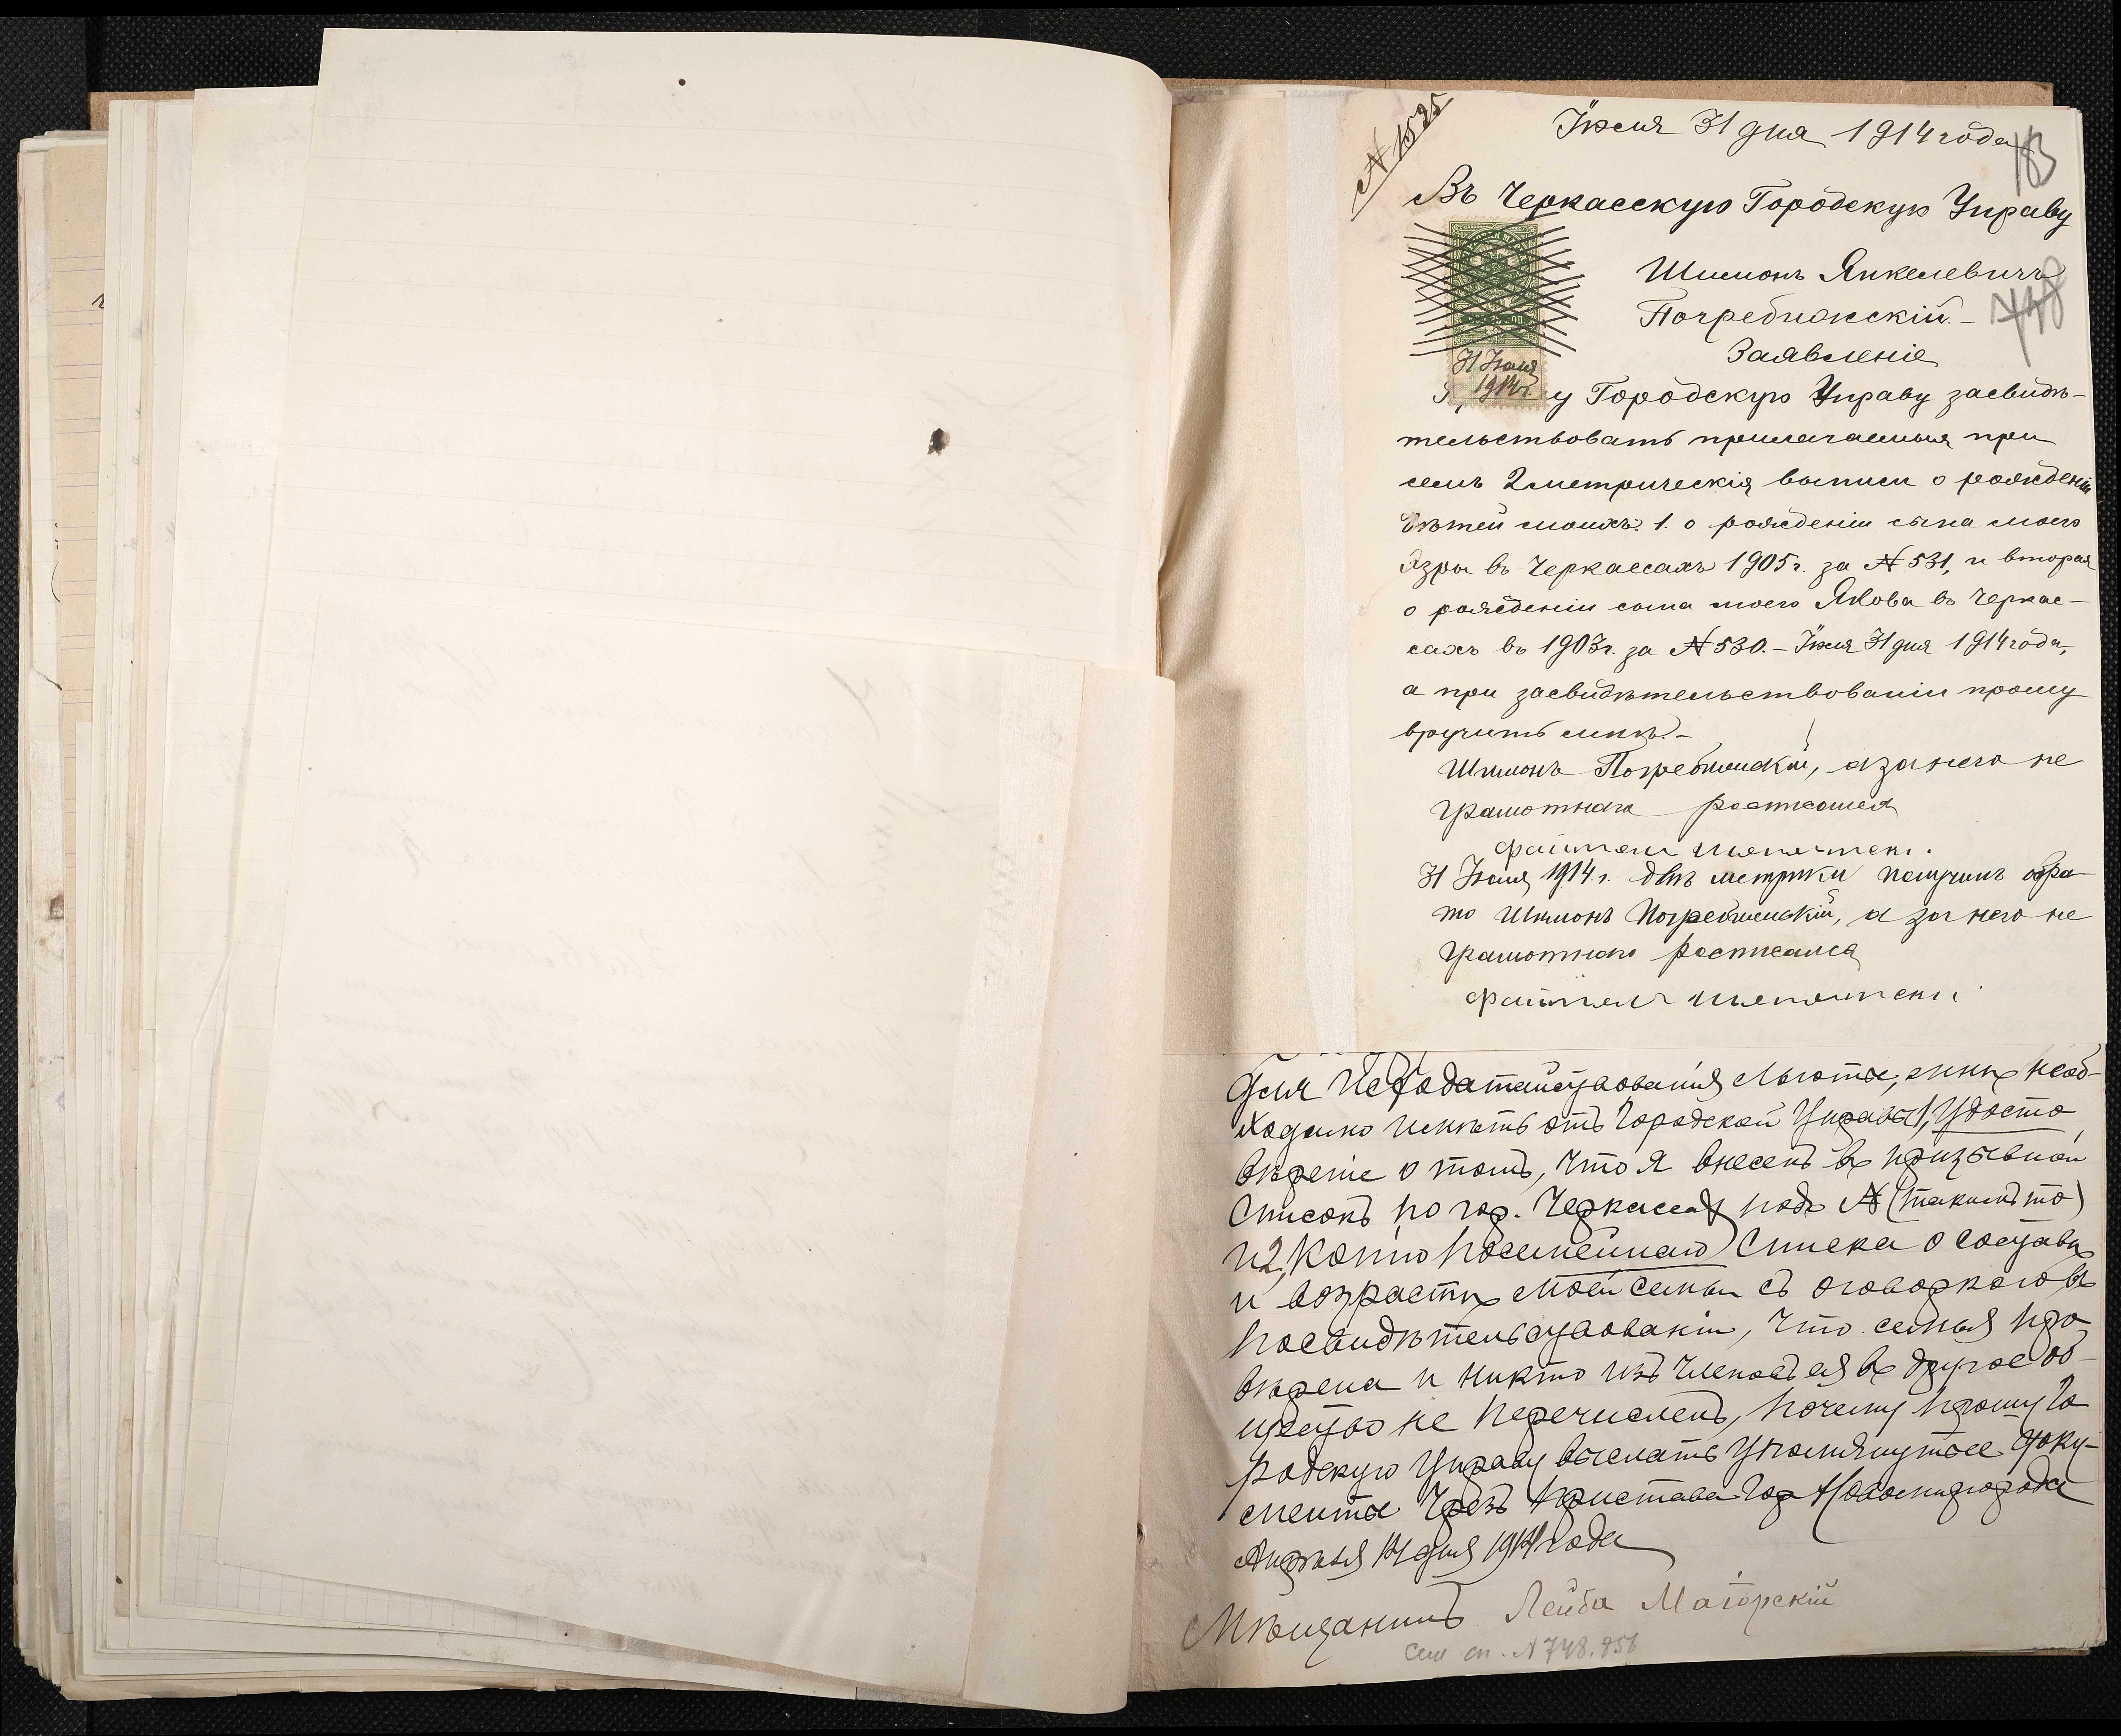 № 1525
Іюля 31 дня 1914 года
Въ Черкасскую Городскую Управу
Шимонъ Янкелевичъ
748
Погребижскій.-
Заявленіе
31 Іюля
1914 г.
у Городскую Управу засвидѣ-
тельствовать прилагаемыя при
семъ 2 метрическія выписи о рожденіи
дѣтей моихъ: 1. о рожденіи сына моего
Азры въ Черкассахъ 1905 г. за № 531, и вторая
о рожденіи сына моего Якова въ Черкас-
сахъ въ 1903 г. за № 530. - Іюля 31 дня 1914 года,
а при засвидѣтельствованіи прошу
вручить мнѣ.-
Шимонъ, а за него не
грамотнаго
31 Іюля 1914 г. двѣ метрики получилъ обра-
то Шимонъ, а за него не
грамотного
для исходатайствованія льготы, мнѣ необ-
ходимо имѣть отъ Городской Управы, 1, удосто
вѣреніе о томъ, что я внесенъ въ призывной
списокъ по гор. Черкассах подъ № (такимъ то)
и 2, копію посемейнаго списка о составѣ
и возрастѣ моей семьи съ оговоркою въ
посвидѣтельствованіи, что семья про
вѣрена и никто изъ членовъ ея въ другое об-
щество не перечисленъ, почему прошу Го
родскую Управу выслать упомянутые доку-
менты чрезъ Пристава гор Новомиргорода
Апрѣля 14 дня 1914 года
Мѣщанинъ Лейба Маіорскій
Сем сп. № 748.